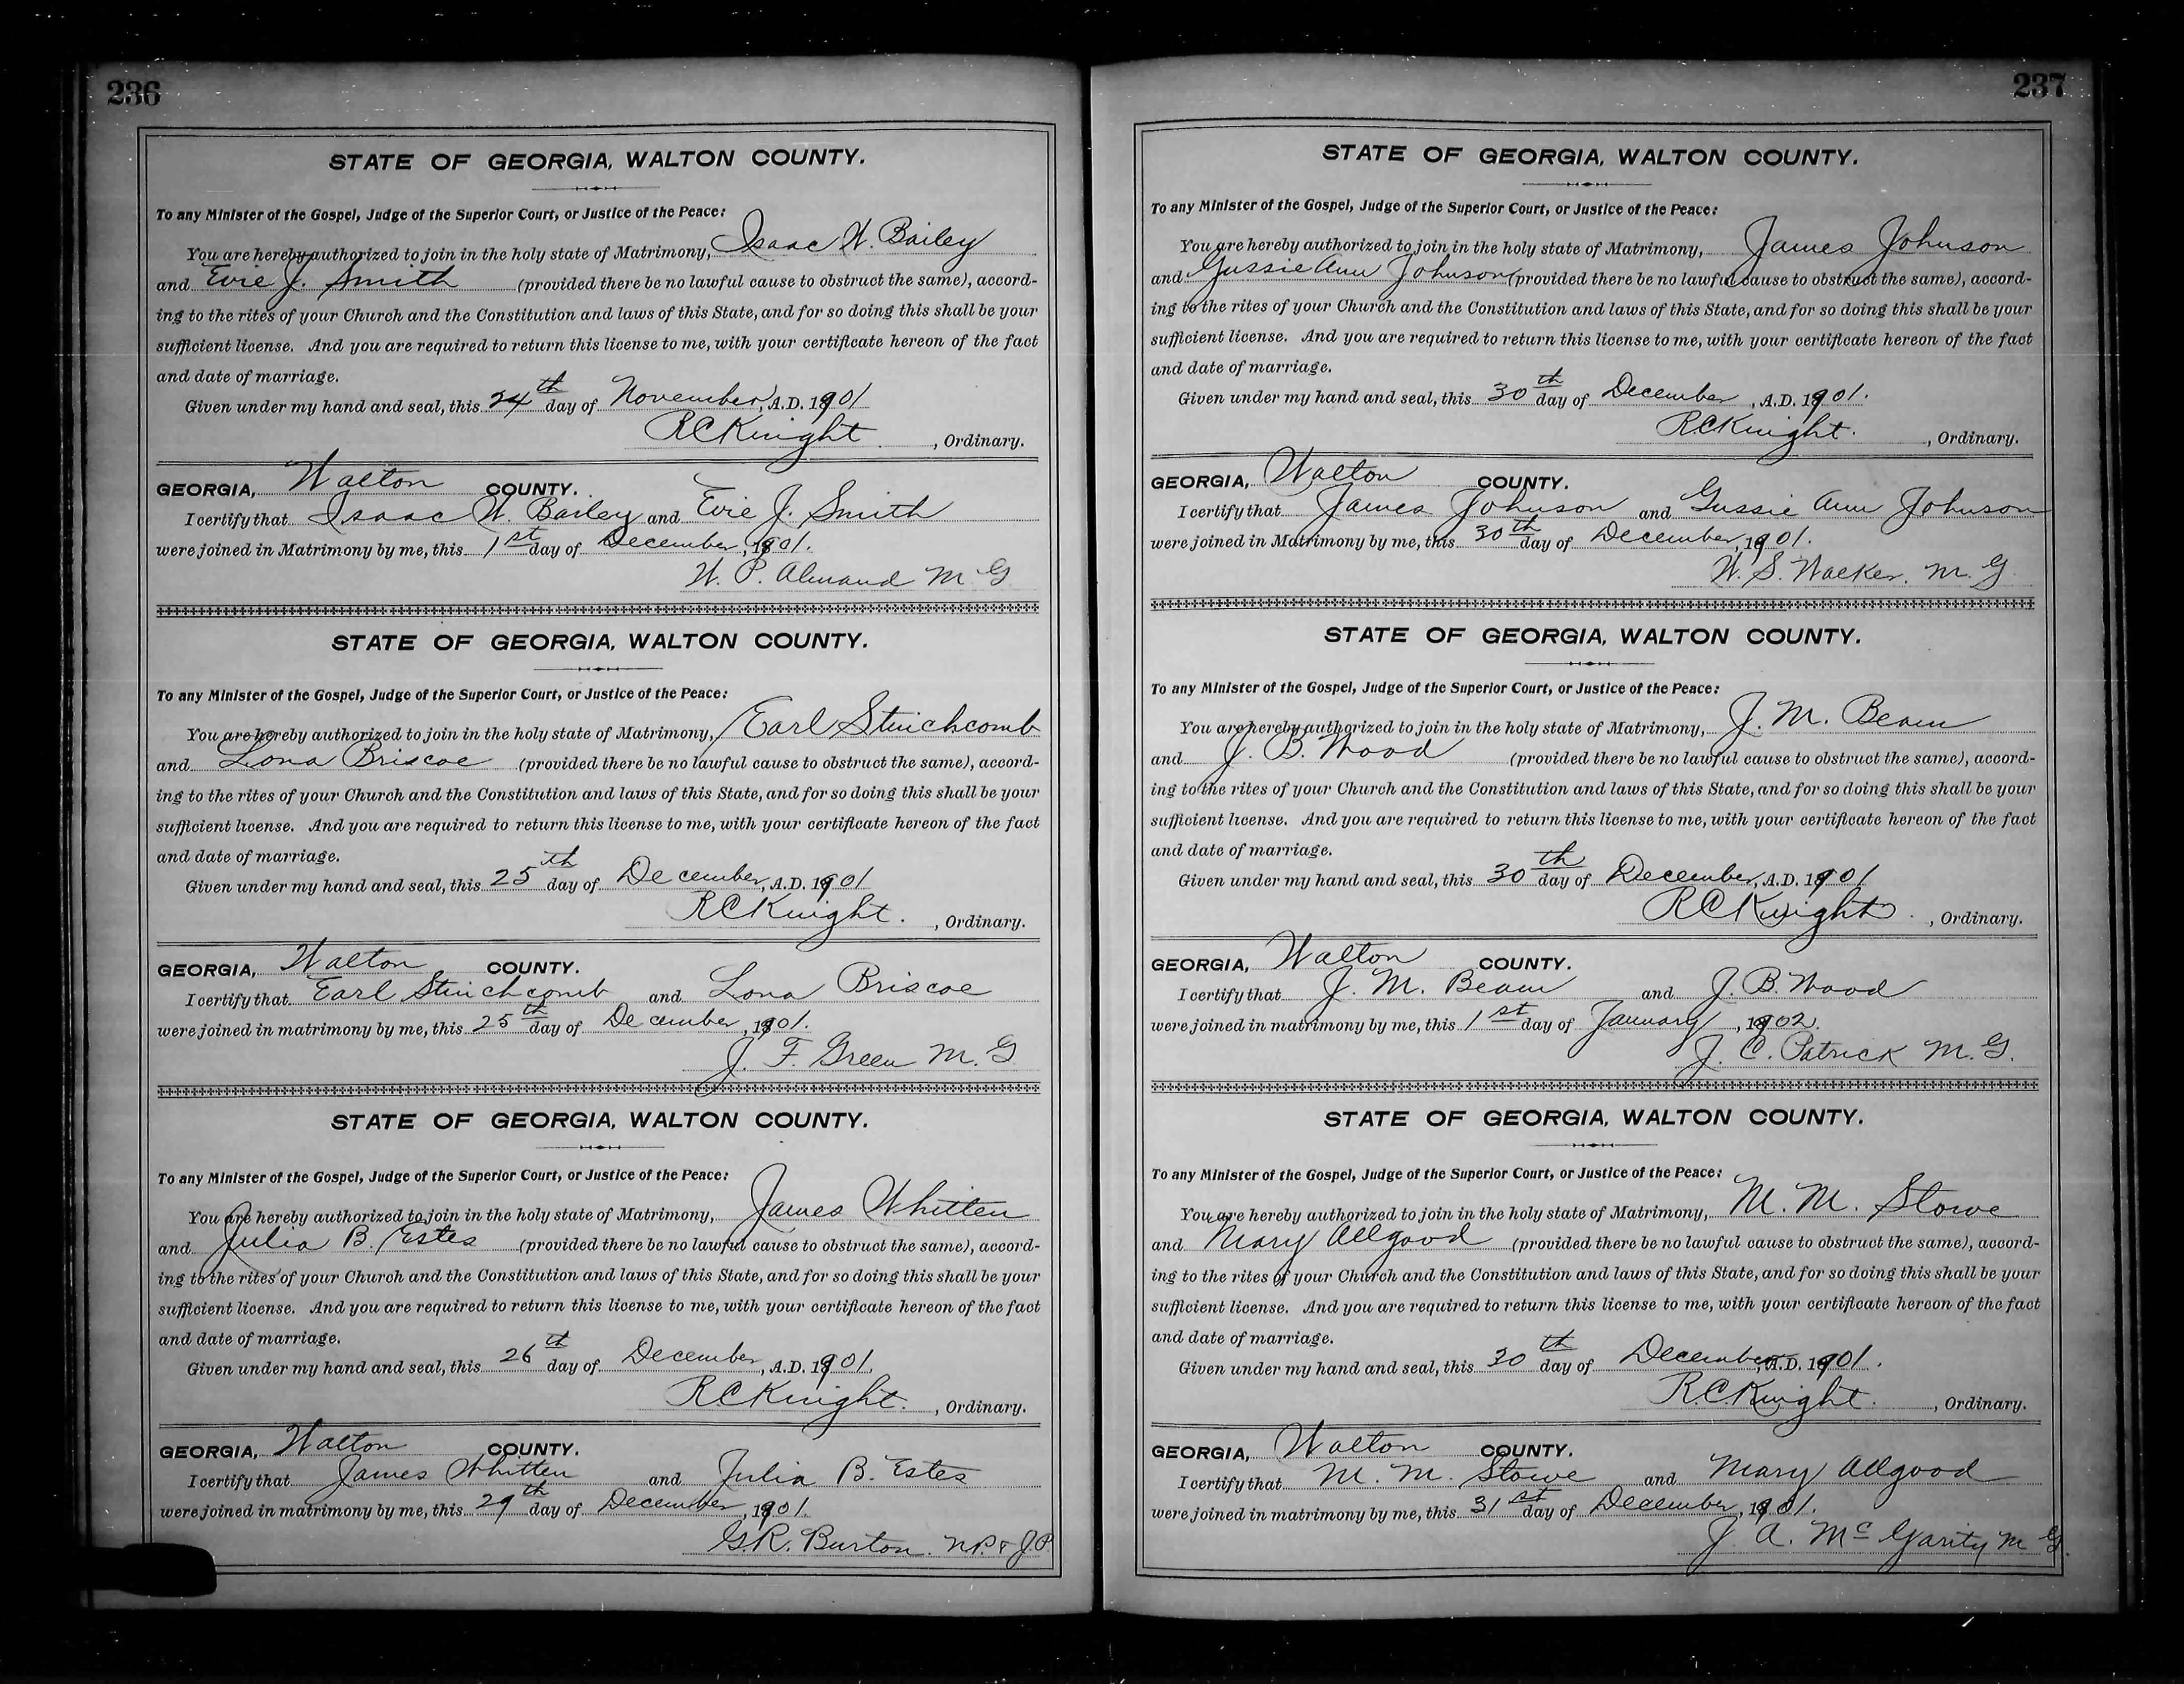 236
STATE OF GEORGIA, WALTON COUNTY.
To any Minister of the Gospel, Judge of the Superior Court, or Justice of the Peace:
You are hereby authorized to join in the holy state of Matrimony, Isaac W. Bailey
and Evie J. Smith (provided there be no lawful cause to obstruct the same), accord-
ing to the rites of your Church and the Constitution and laws of this State, and for so doing this shall be your
sufficient license. And you are required to return this license to me, with your certificate hereon of the fact
and date of marriage.
Given under my hand and seal, this 24th day of November, A.D. 1901
R C Knight, Ordinary.
GEORGIA, Walton COUNTY.
I certify that Isaac W. Bailey and Evie J. Smith
were joined in Matrimony by me, this 1st day of December, 1901.
W. P. Almand M G
STATE OF GEORGIA, WALTON COUNTY.
To any Minister of the Gospel, Judge of the Superior Court, or Justice of the Peace:
You are hereby authorized to join in the holy state of Matrimony, Earl Stinchcomb
and Lona Briscoe (provided there be no lawful cause to obstruct the same), accord-
ing to the rites of your Church and the Constitution and laws of this State, and for so doing this shall be your
sufficient license. And you are required to return this license to me, with your certificate hereon of the fact
and date of marriage.
Given under my hand and seal, this 25th day of December, A.D. 1901
R C Knight., Ordinary.
GEORGIA, Walton COUNTY.
I certify that Earl Stinchcomb and Lona Briscoe
were joined in matrimony by me, this 25th day of December, 1901.
J. F. Green M. G
STATE OF GEORGIA, WALTON COUNTY.
To any Minister of the Gospel, Judge of the Superior Court, or Justice of the Peace:
You are hereby authorized to join in the holy state of Matrimony, James Whitten
and Julia B. Estes (provided there be no lawful cause to obstruct the same), accord-
ing to the rites of your Church and the Constitution and laws of this State, and for so doing this shall be your
sufficient license. And you are required to return this license to me, with your certificate hereon of the fact
and date of marriage.
Given under my hand and seal, this 26th day of December, A.D. 1901.
R C Knight., Ordinary.
GEORGIA, Walton COUNTY.
I certify that James Whitten and Julia B. Estes
were joined in matrimony by me, this 29th day of December, 1901.
G. R. Burton. N.P. & J.P.
237
STATE OF GEORGIA, WALTON COUNTY.
To any Minister of the Gospel, Judge of the Superior Court, or Justice of the Peace:
You are hereby authorized to join in the holy state of Matrimony, James Johnson
and Gussie Ann Johnson (provided there be no lawful cause to obstruct the same), accord-
ing to the rites of your Church and the Constitution and laws of this State, and for so doing this shall be your
sufficient license. And you are required to return this license to me, with your certificate hereon of the fact
and date of marriage.
Given under my hand and seal, this 30th day of December, A.D. 1901.
R C Knight., Ordinary.
GEORGIA, Walton COUNTY.
I certify that James Johnson and Gussie Ann Johnson
were joined in Matrimony by me, this 30th day of December, 1901.
W. S. Walker. M. G.
STATE OF GEORGIA, WALTON COUNTY.
To any Minister of the Gospel, Judge of the Superior Court, or Justice of the Peace:
You are hereby authorized to join in the holy state of Matrimony, J. M. Beam
and J. B. Wood (provided there be no lawful cause to obstruct the same), accord-
ing to the rites of your Church and the Constitution and laws of this State, and for so doing this shall be your
sufficient license. And you are required to return this license to me, with your certificate hereon of the fact
and date of marriage.
Given under my hand and seal, this 30th day of December, A.D. 1901
R C Knight., Ordinary.
GEORGIA, Walton COUNTY.
I certify that J. M. Beam and J. B. Wood
were joined in matrimony by me, this 1st day of January, 1902.
J. C. Patrick M. G.
STATE OF GEORGIA, WALTON COUNTY.
To any Minister of the Gospel, Judge of the Superior Court, or Justice of the Peace:
You are hereby authorized to join in the holy state of Matrimony, M. M. Stowe
and Mary Allgood (provided there be no lawful cause to obstruct the same), accord-
ing to the rites of your Church and the Constitution and laws of this State, and for so doing this shall be your
sufficient license. And you are required to return this license to me, with your certificate hereon of the fact
and date of marriage.
Given under my hand and seal, this 30th day of December, A.D. 1901.
R. C. Knight., Ordinary.
GEORGIA, Walton COUNTY.
I certify that M. M. Stowe and Mary Allgood
were joined in matrimony by me, this 31st day of December, 1901.
J. A. McGarity M G.